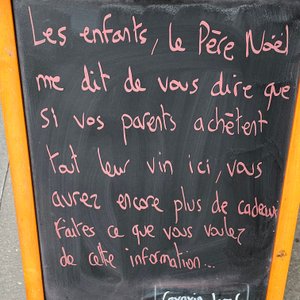 Les enfants, le Père Noël
me dit de vous dire que
si vos parents achètent
tout leur vin ici, vous
aurez encore plus de cadeaux
Faites ce que vous voulez
de cette information...